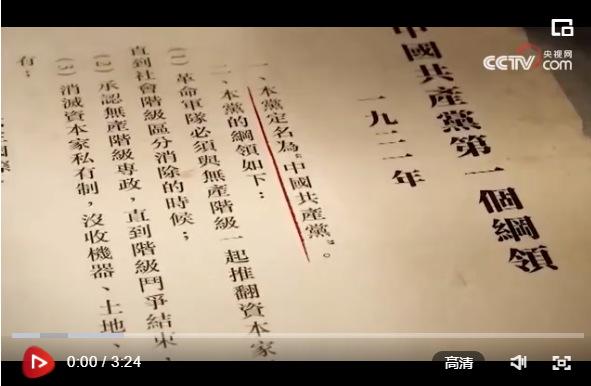 CCTV 央视网
com
中國共產黨第一個綱領
一九二一年
一、本黨定名為“中國共產黨”。
二、本黨的綱領如下：
(1) 革命軍隊必須與無產階級一起推翻資本家
直到社會階級區分消除的時候；
(2) 承認無產階級專政，直到階級鬥爭結束，
(3) 消滅資本家私有制，沒收機器、土地、
有；
0:00 / 3:24
高清